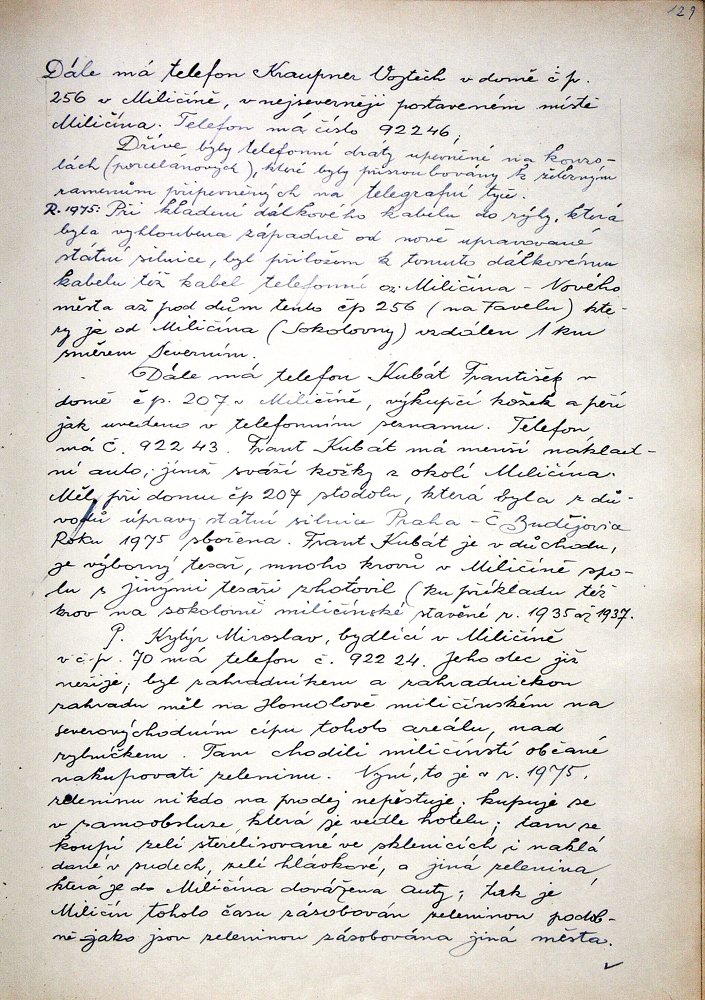 129
Dále má telefon Kraupner Vojtěch v domě čp.
256 v Miličíně, v nejseverněji postaveném místě
Miličína. Telefon má číslo 92246;
Dříve byly telefonní dráty upevněné na konzo-
lách (porcelánových), které byly přisroubovany k železným
ramenům připevněných na telegrafní tyče.
R. 1975: Při kladení dálkového kabelu do rýhy, která
byla vyhloubena západně od nově upravované
státní silnice, byl přiložen k tomuto dálkovému
kabelu též kabel telefonní Miličína - Nového
města až pod dům tento čp 256 (na Favelu) kte-
rý je od Miličína (Sokolovny) vzdálen 1 km
směrem Severním.
Dále má telefon Kubát František v
domě čp. 207 v Miličíně, výkupčí kožek a peří
jak uvedeno v telefonním seznamu. Telefon
má č. 92243. Frant Kubát má menší náklad-
ní auto, jímž sváží kožky z okolí Miličína.
Měl při domu čp 207 stodolu, která byla z dů-
vodů úpravy státní silnice Praha - Č. Budějovice
Roku 1975 sbořena. Frant Kubát je v důchodu,
je výborný tesař, mnoho krovů v Miličíně spo-
lu s jinými tesaři zhotovil (ku příkladu též
krov na sokolovně miličínské stavěné r. 1935 až 1937.
P. Kylýr Miroslav, bydlící v Miličíně
v č-p. 70 má telefon č. 92224. Jeho otec již
nežije; byl zahradníkem a zahradnickou
zahradu měl na Homolově miličínském na
severovýchodním cípu tohoto areálu, nad
rybníčkem. Tam chodili miličínstí občané
nakupovati zeleninu. Nyní, to je v r. 1975,
zeleninu nikdo na prodej nepěstuje; kupuje se
v samoobsluze která je vedle hotelu; tam se
koupí zelí sterilisované ve sklenicích i naklá
dané v sudech, zelí hlávkové, a jiná zelenina,
která je do Miličína dovážena auty; tak je
Miličín toholo času zásobován zeleninou podob-
ně jako jsou zeleninou zásobována jiná města.